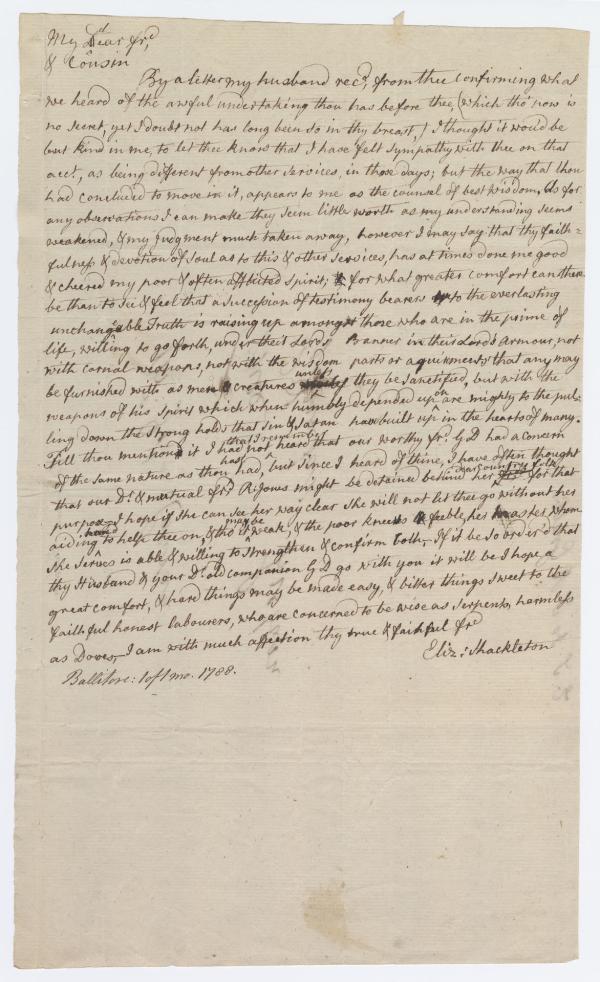 My Dear frd,
& Cousin
By a letter my husband recd, from thee confirming what
we heard of the awful undertaking thou has before thee, (which tho' now is
no secret, yet I doubt not has long been so in thy breast,) I thought it would be
but kind in me, to let thee know that I have felt sympathy with thee on that
acct, as being different from other services, in those days; but the way that thou
had concluded to move in it, appears to me as the counsel of best wisdom. As for
any observations I can make they seem little worth as my understanding seems
weakened, & my judgment much taken away, however I may say that thy faith=
fulness & devotion of soul as to this & other services, has at times done me good
& cheered my poor & often afflicted spirit; for what greater comfort can there
be than to see & feel that a succession of testimony bearers to the everlasting
unchangable Truth is raising up amongst those who are in the prime of
life, willing to go forth, under their Lords Banner in their Lords armour, not
with carnal weapons, not with the wisdom parts or aquirments that any may
be furnished with as men & creatures unless they be sanctified, but with the
weapons of his Spirit which when humbly depended upon are mighty to the pul=
ling down the strong holds that sin & Satan have built up in the hearts of many.
Till thou mentiond it I had not that I remember heard that our worthy frd. G D had a concern
of the same nature as thou has had, but since I heard of thine, I have often thought
that our Dr. & mutual frd R: Jones might be detained behind her country folk, for that
purpose I hope if she can see her way clear she will not let thee go without her
aiding hand to help thee on, & tho' it may be weak, & the poor knees feeble, her as hers whom
she serves is able & willing to strengthen & confirm both,- If it be so order'd that
thy Husband & your Dr. old companion G D go with you it will be I hope a
great comfort, & hard things may be made easy, & bitter things sweet to the
faithful honest labourers, who are concerned to be wise as serpents, harmless
as Doves,- I am with much affection thy true & faithful frd
Eliz: Shackleton
Ballitore: 1 of 1 mo. 1788.